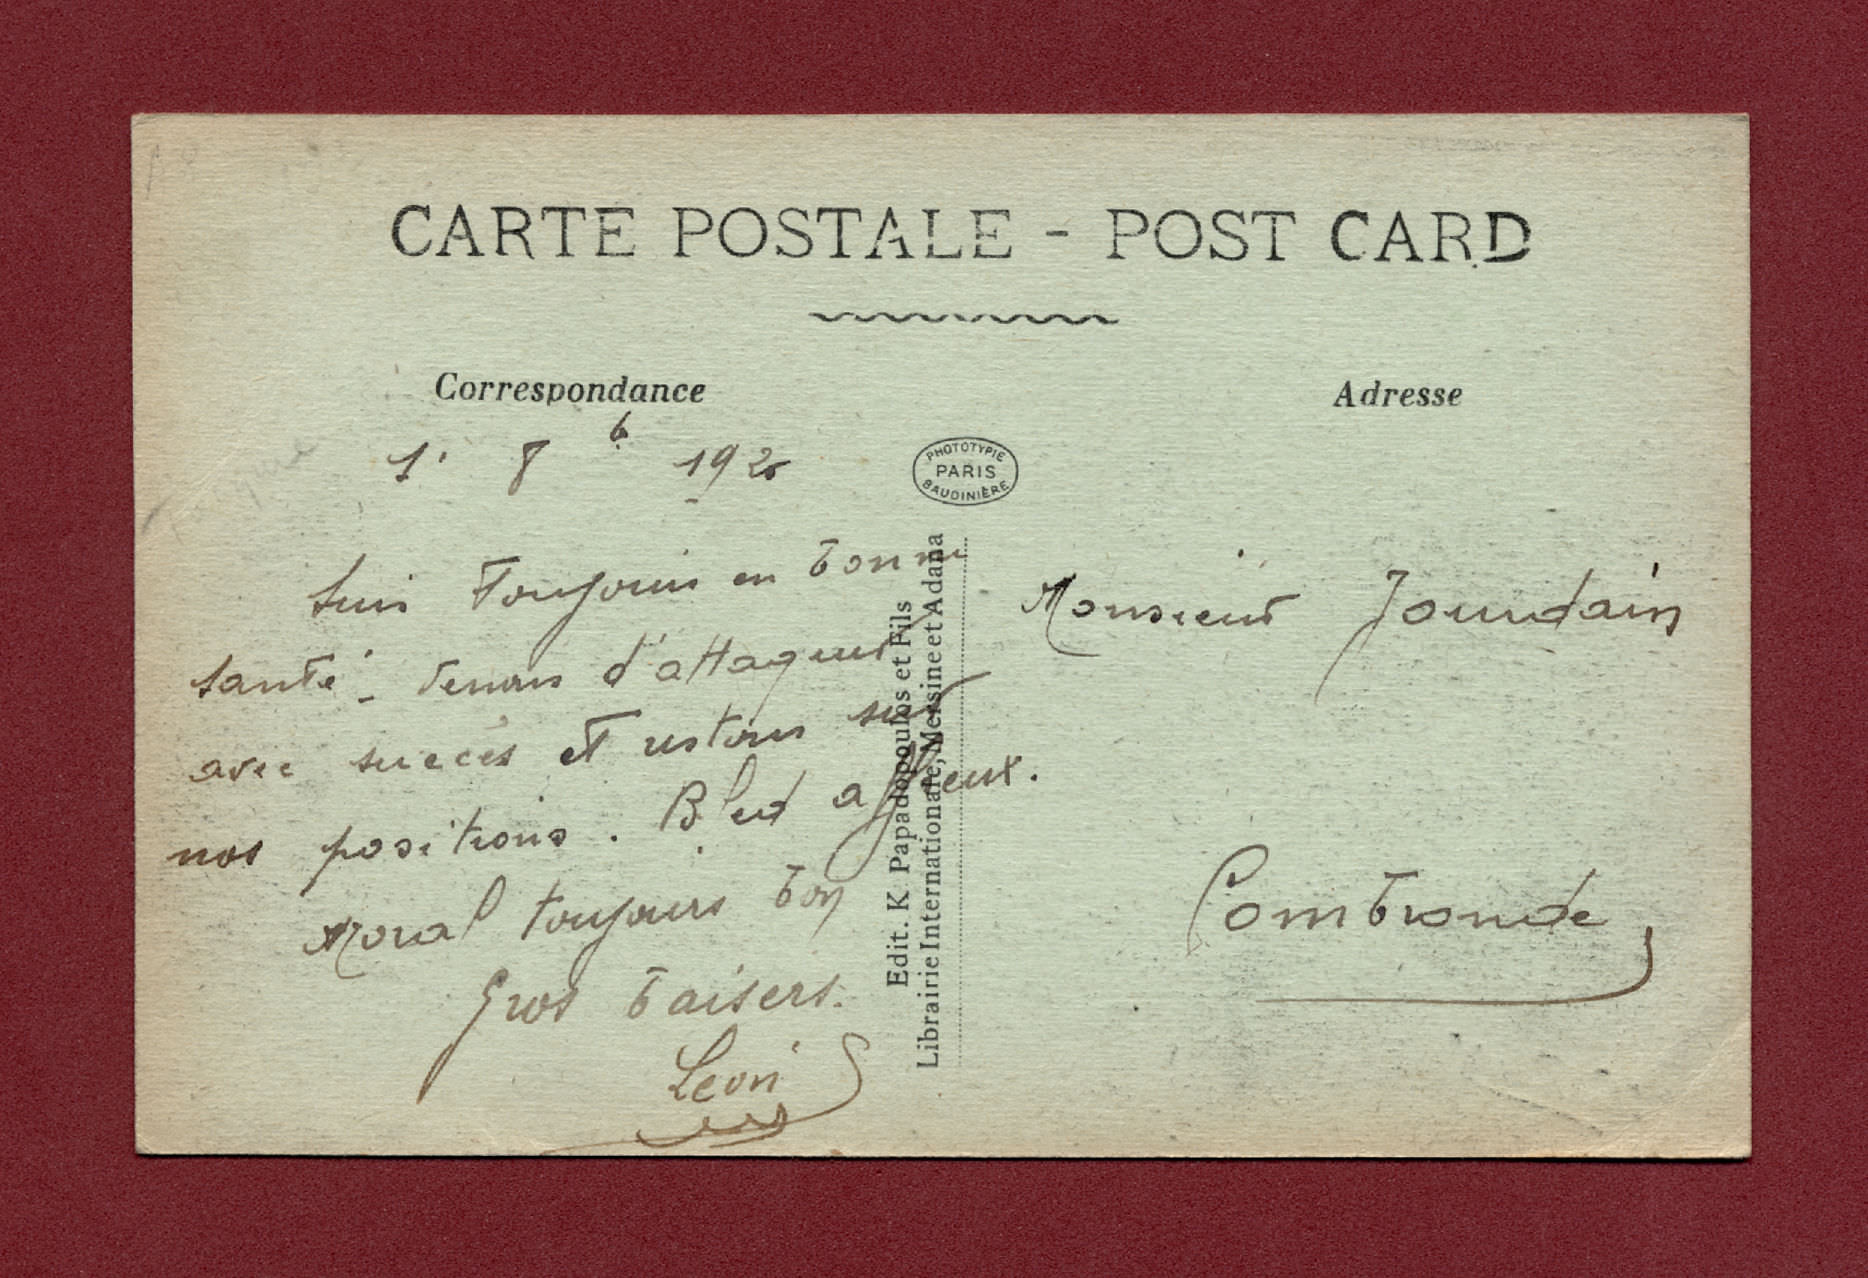 CARTE POSTALE - POST CARD
Correspondance
1. 8 b 192
Suis toujours en bonne
santé - Venons d'attaquer
avec succès et restons sur
nos positions. Bled affreux.
Moral toujours bon
Gros baisers.
Léon
PHOTOTYPIE
PARIS
BAUDINIÈRE
Edit. K Papadopoulos et Fils
Librairie Internationale, Mersine et Adana
Adresse
Monsieur Jourdain
Combronde